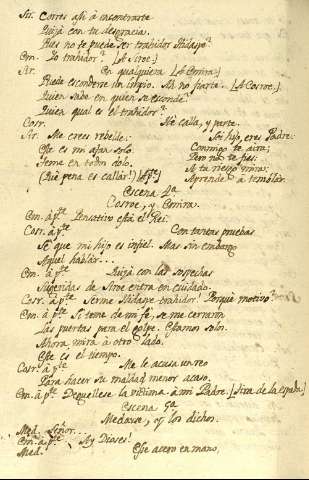 Sir. Corres assi à incontrarte
Quizà con tu desgracia.
Pues no te puede ser trahidor Hidaspe?
Em. Yo trahidor? [A Siroe.]
Sir. En qualquiera [A Emira.]
Puede esconderse un impio. Mi no fiaria. [A Cosroe.]
Quien sabe en quien se esconde
Quien qual es el trahidor?
Cosr. Ve calla, y parte.
Sir. Me crees rebelle: Soi hijo, eres Padre:
Este es mi afan solo. Conmigo te aira;
Teme en todo dolo. Pero no te fies:
(Què pena es callar!) A tu riesgo mira:
Aprende à temblar.
Escena 4ª
Cosroe, y Emira.
Em. à pte Pensativo està el Rei.
Cosr. à pte Con tantas pruebas
Sè que mi hijo es infiel. Mas sin embargo
Aquel hablar...
Em. à pte Quizà con las sospechas
Nacidas de Siroe entra en cuidado.
Cosr. à pte Serme Hidaspe trahidor! Porquè motivo?
Em. à pte Si teme de mi fe, se me cerraron
Las puertas para el golpe. Estamos solos.
Ahora mira à otro lado.
Este es el tiempo.
Cosr. à pte Me le acusa un reo
Para hacer su maldad menor acaso.
Em. à pte Deguellese la victima à mi Padre. [Tira de la espada.]
Escena 5ª
Medarse, y los dichos.
Med. Señor...
Em. à pte Ay Dioses!
Med. Esse acero en mano,